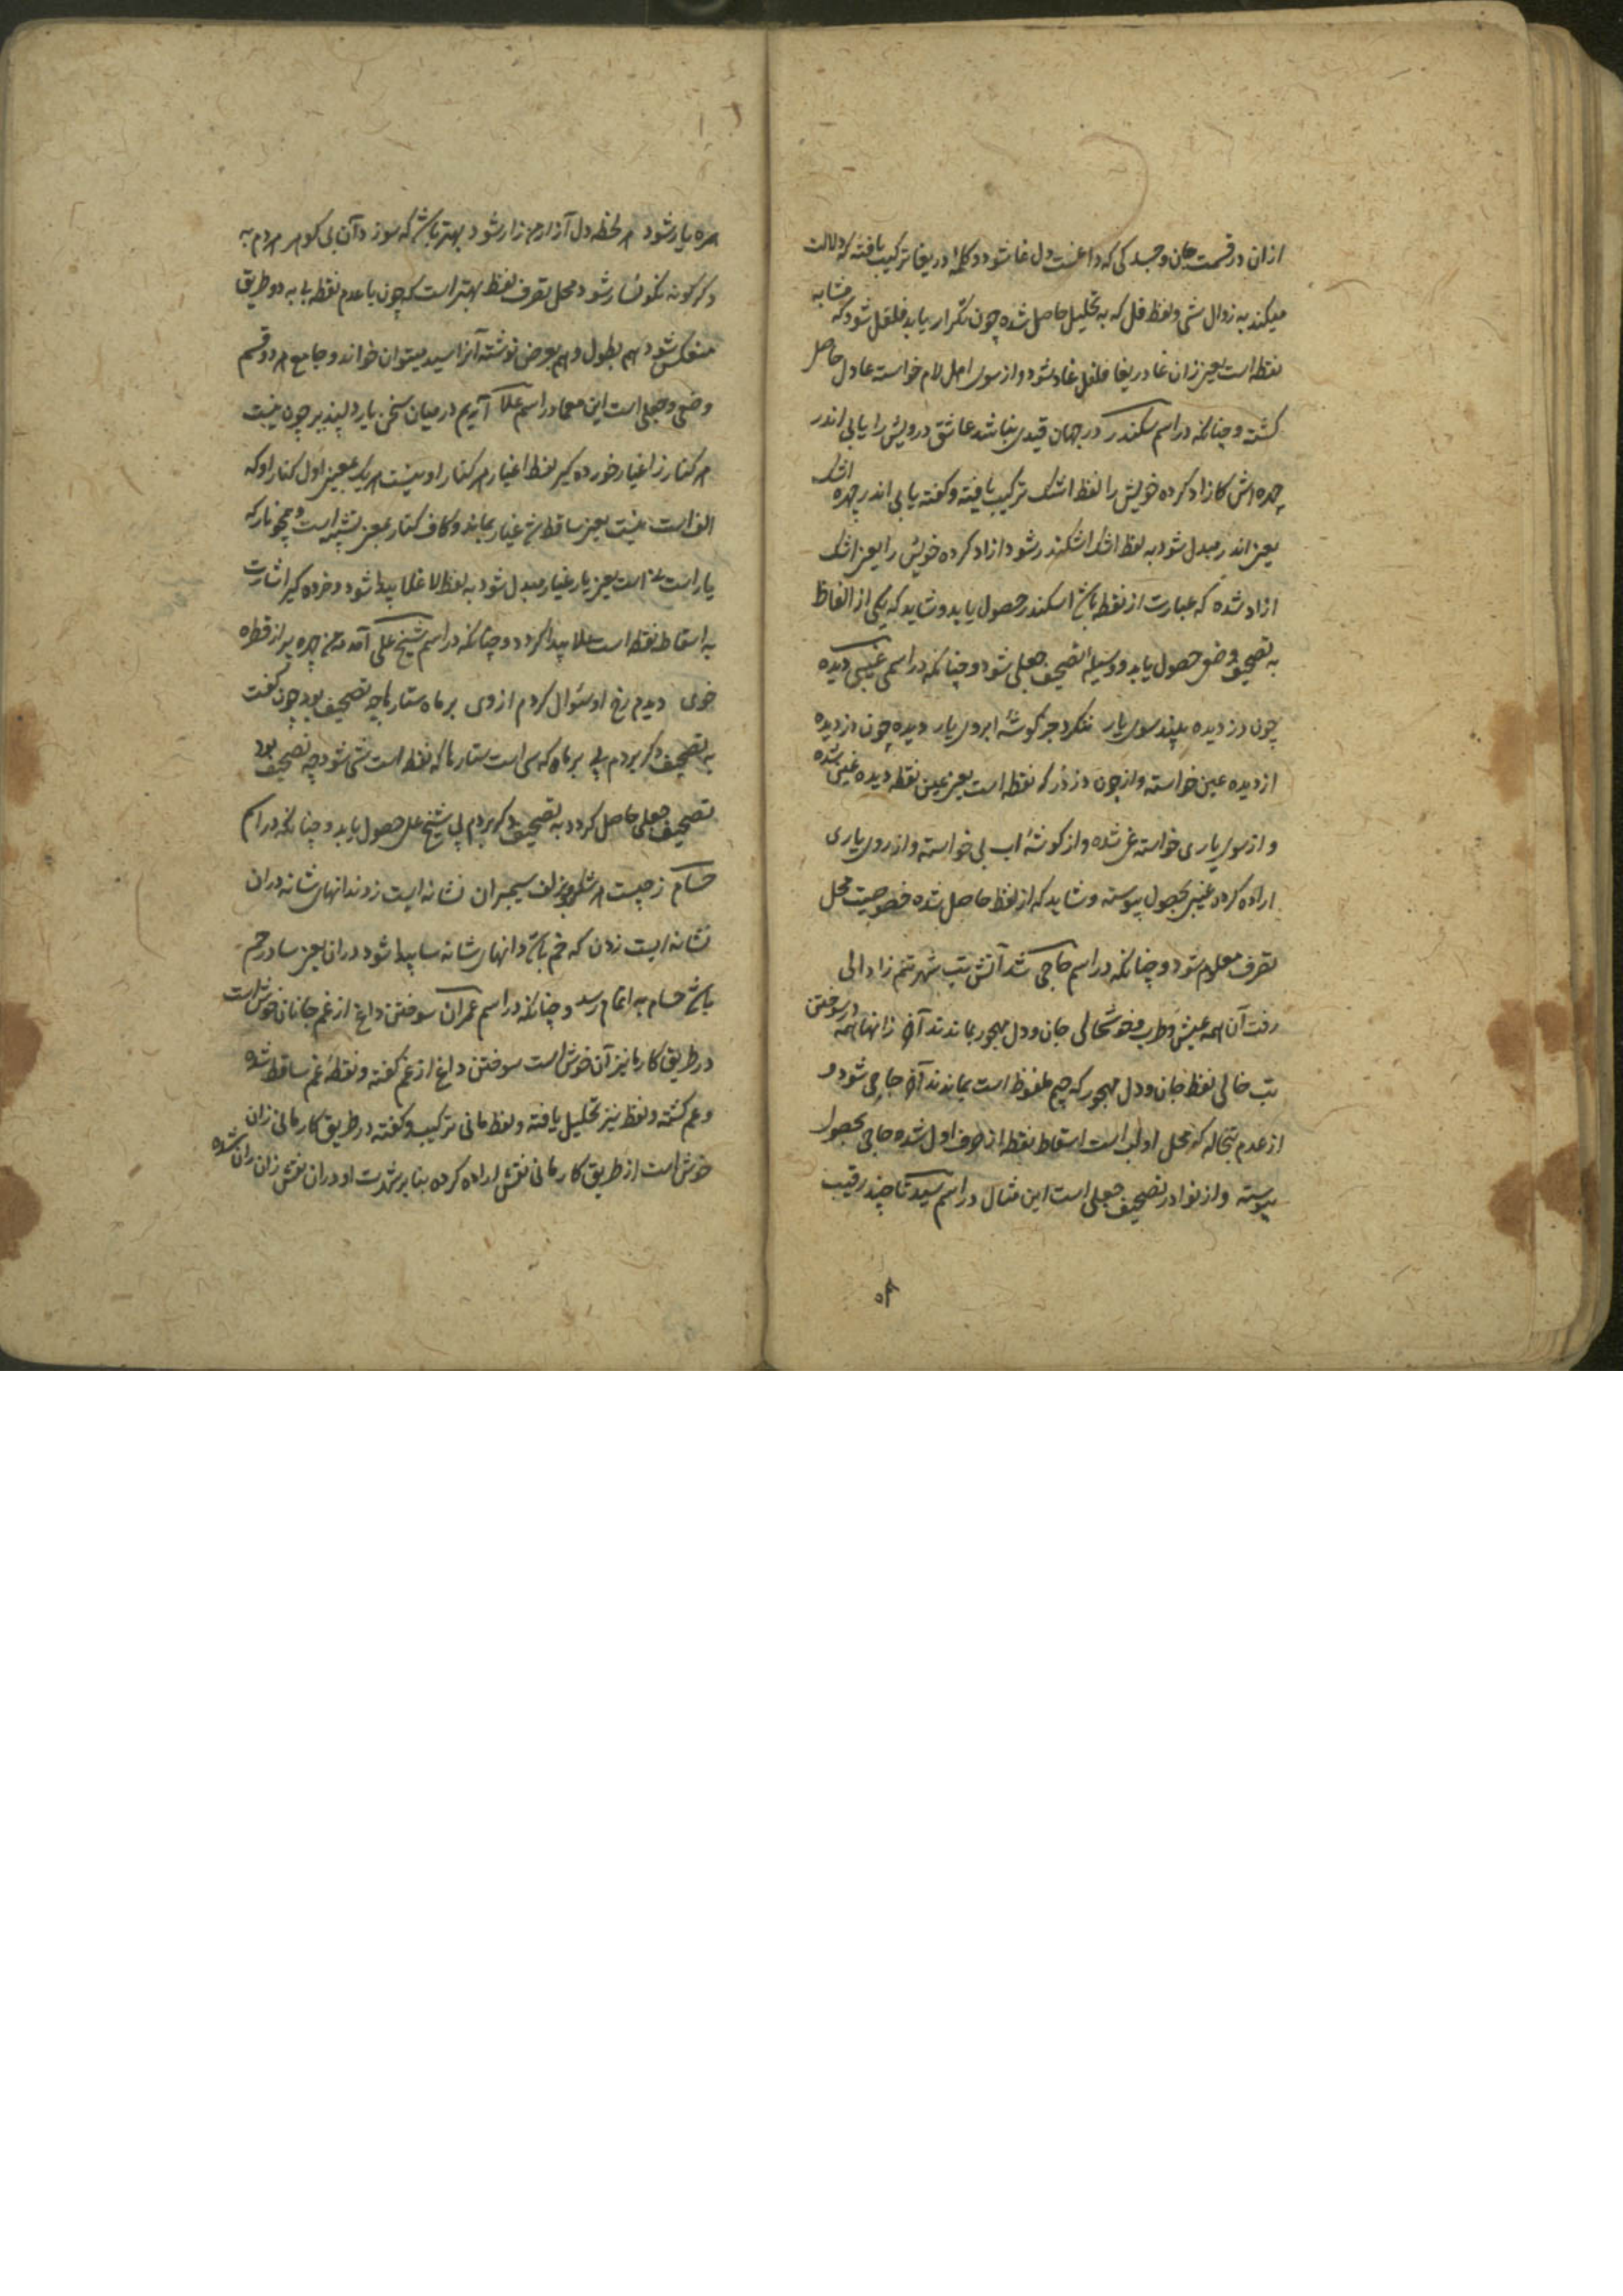 ازان در قسمت جان و جسد کی که داغست دل غا شود و کلمهٔ دریغا ترکیب یافته که دلالت
میکند به زوال شی و لفظ فل که به تحلیل حاصل شده چون تکرار یابد فلفل شود که مشابه
نقطه است یعنی زان غا دریغا فلفل غاد شود و از سوی اصل لام خواسته عادل حاصل
کشته و چنانکه در اسم سکندر در جهان قیدی نباشد عاشق درویش را یابی اندر
چهره اش کازاد کرده خویش را لفظ اشک ترکیب یافته و کفته یابی اندر چهره اشک
یعنی اندر مبدل شود به لفظ اشک اشکندر شود ازاد کرده خویش را یعنی اشک
ازاد شده که عبارت از نقطه باشد اسکندر حصول یابد و شاید که یکی از الفاظ
به تصحیف وضعی حصول یابد و وسیلهٔ تصحیف جعلی شود و چنانکه در اسم غیبی دیده
چون دزدیده بیند سوی یار ننکرد جز کوشهٔ ابروی یار دیده چون دزدیده
از دیده عین خواسته و از چون دزدکر نقطه است یعنی عین نقطه دیده غین شده
و از سوی یاری خواسته غی شده و از کوشهٔ اب بی خواسته و از روی یاری
اراده کرده غیبی بحصول پیوسته و شاید که از لفظ حاصل شده خصوصیت محل
تصرف معلوم شود و چنانکه در اسم حاجی شد آتش تب شهر تنم زا والی
رفت آن همه عیش و طرب و خوشحالی جان و دل مهجور بماندند آخر زانها همه در سوختن
تب خالی لفظ جان و دل مهجور که جیم ملفوظ است بماندند آخر جاجی شود و
از عدم تبخاله که محل او لب است اسقاط نقطه از حرف اول شده حاجی بحصول
پیوسته و از نوادر تصحیف جعلی است این مثال در اسم سید تا چند رقیب
همره یار شود هر لحظه دل آزار من زار شود بهتر باشد که سوزد آن بی کوهر هر دم به
دکر کونه نکونسار شود محل تصرف لفظ بهتر است که چون با عدم نقطه بی به دو طریق
منعکس شود هم بطول و هم بعرض نوشته آنرا سید میتوان خواند و جامع هر دو قسم
وضعی و جعلی است این معما در اسم علا آریم در میان سخن یار دلپذیر چون نیست
هر کنار ز اغیار خورده کیر لفظ اغیار هر کنار او نیست هر یک بمعنی اول کنار او که
الف است نیست یعنی ساقط شد غیار بماند و کاف کنار بمعنی تشبیه است و همچو نار که
یار است یعنی یار غیار مبدل شود به لفظ لا غلا پیدا شود و خرده کیر اشارت
به اسقاط نقطه است علا پیدا کردد و چنانکه در اسم شیخ علی آمد مه من چهره پر از قطره
خوی دیدم رخ او سئوال کردم از وی بر ماه ستارها چه تصحیف بود چون کفت
به تصحیف دکر بردم پی بر ماه که سی است ستارها که نقطه است شی شود چه تصحیف بود
تصحیف جعلی حاصل کردد به تصحیف دکر بردم پی شیخ علی حصول یابد و چنانکه در اسم
حسام زجیست هر شکن زلف سیمبران نشانه ایست ز دندانهای شانه دران
نشانه ایست زدن که خم باشد دانهای شانه سا پیدا شود دران یعنی سا در حم
باشد حسام به اتمام رسد و چنانکه در اسم عمران سوختن داغ از غم جانان خوش است
در طریق کار ما نیز آن خوش است سوختن داغ از غم کفته و نقطهٔ غم ساقط شده
و عم کشته و لفظ نیز تحلیل یافته و لفظ مانی ترکیب و کفته در طریق کار مانی زان
خوش است از طریق کار مانی نقش اراده کرده بنا بر شهرت او دران نقش زان ران شده